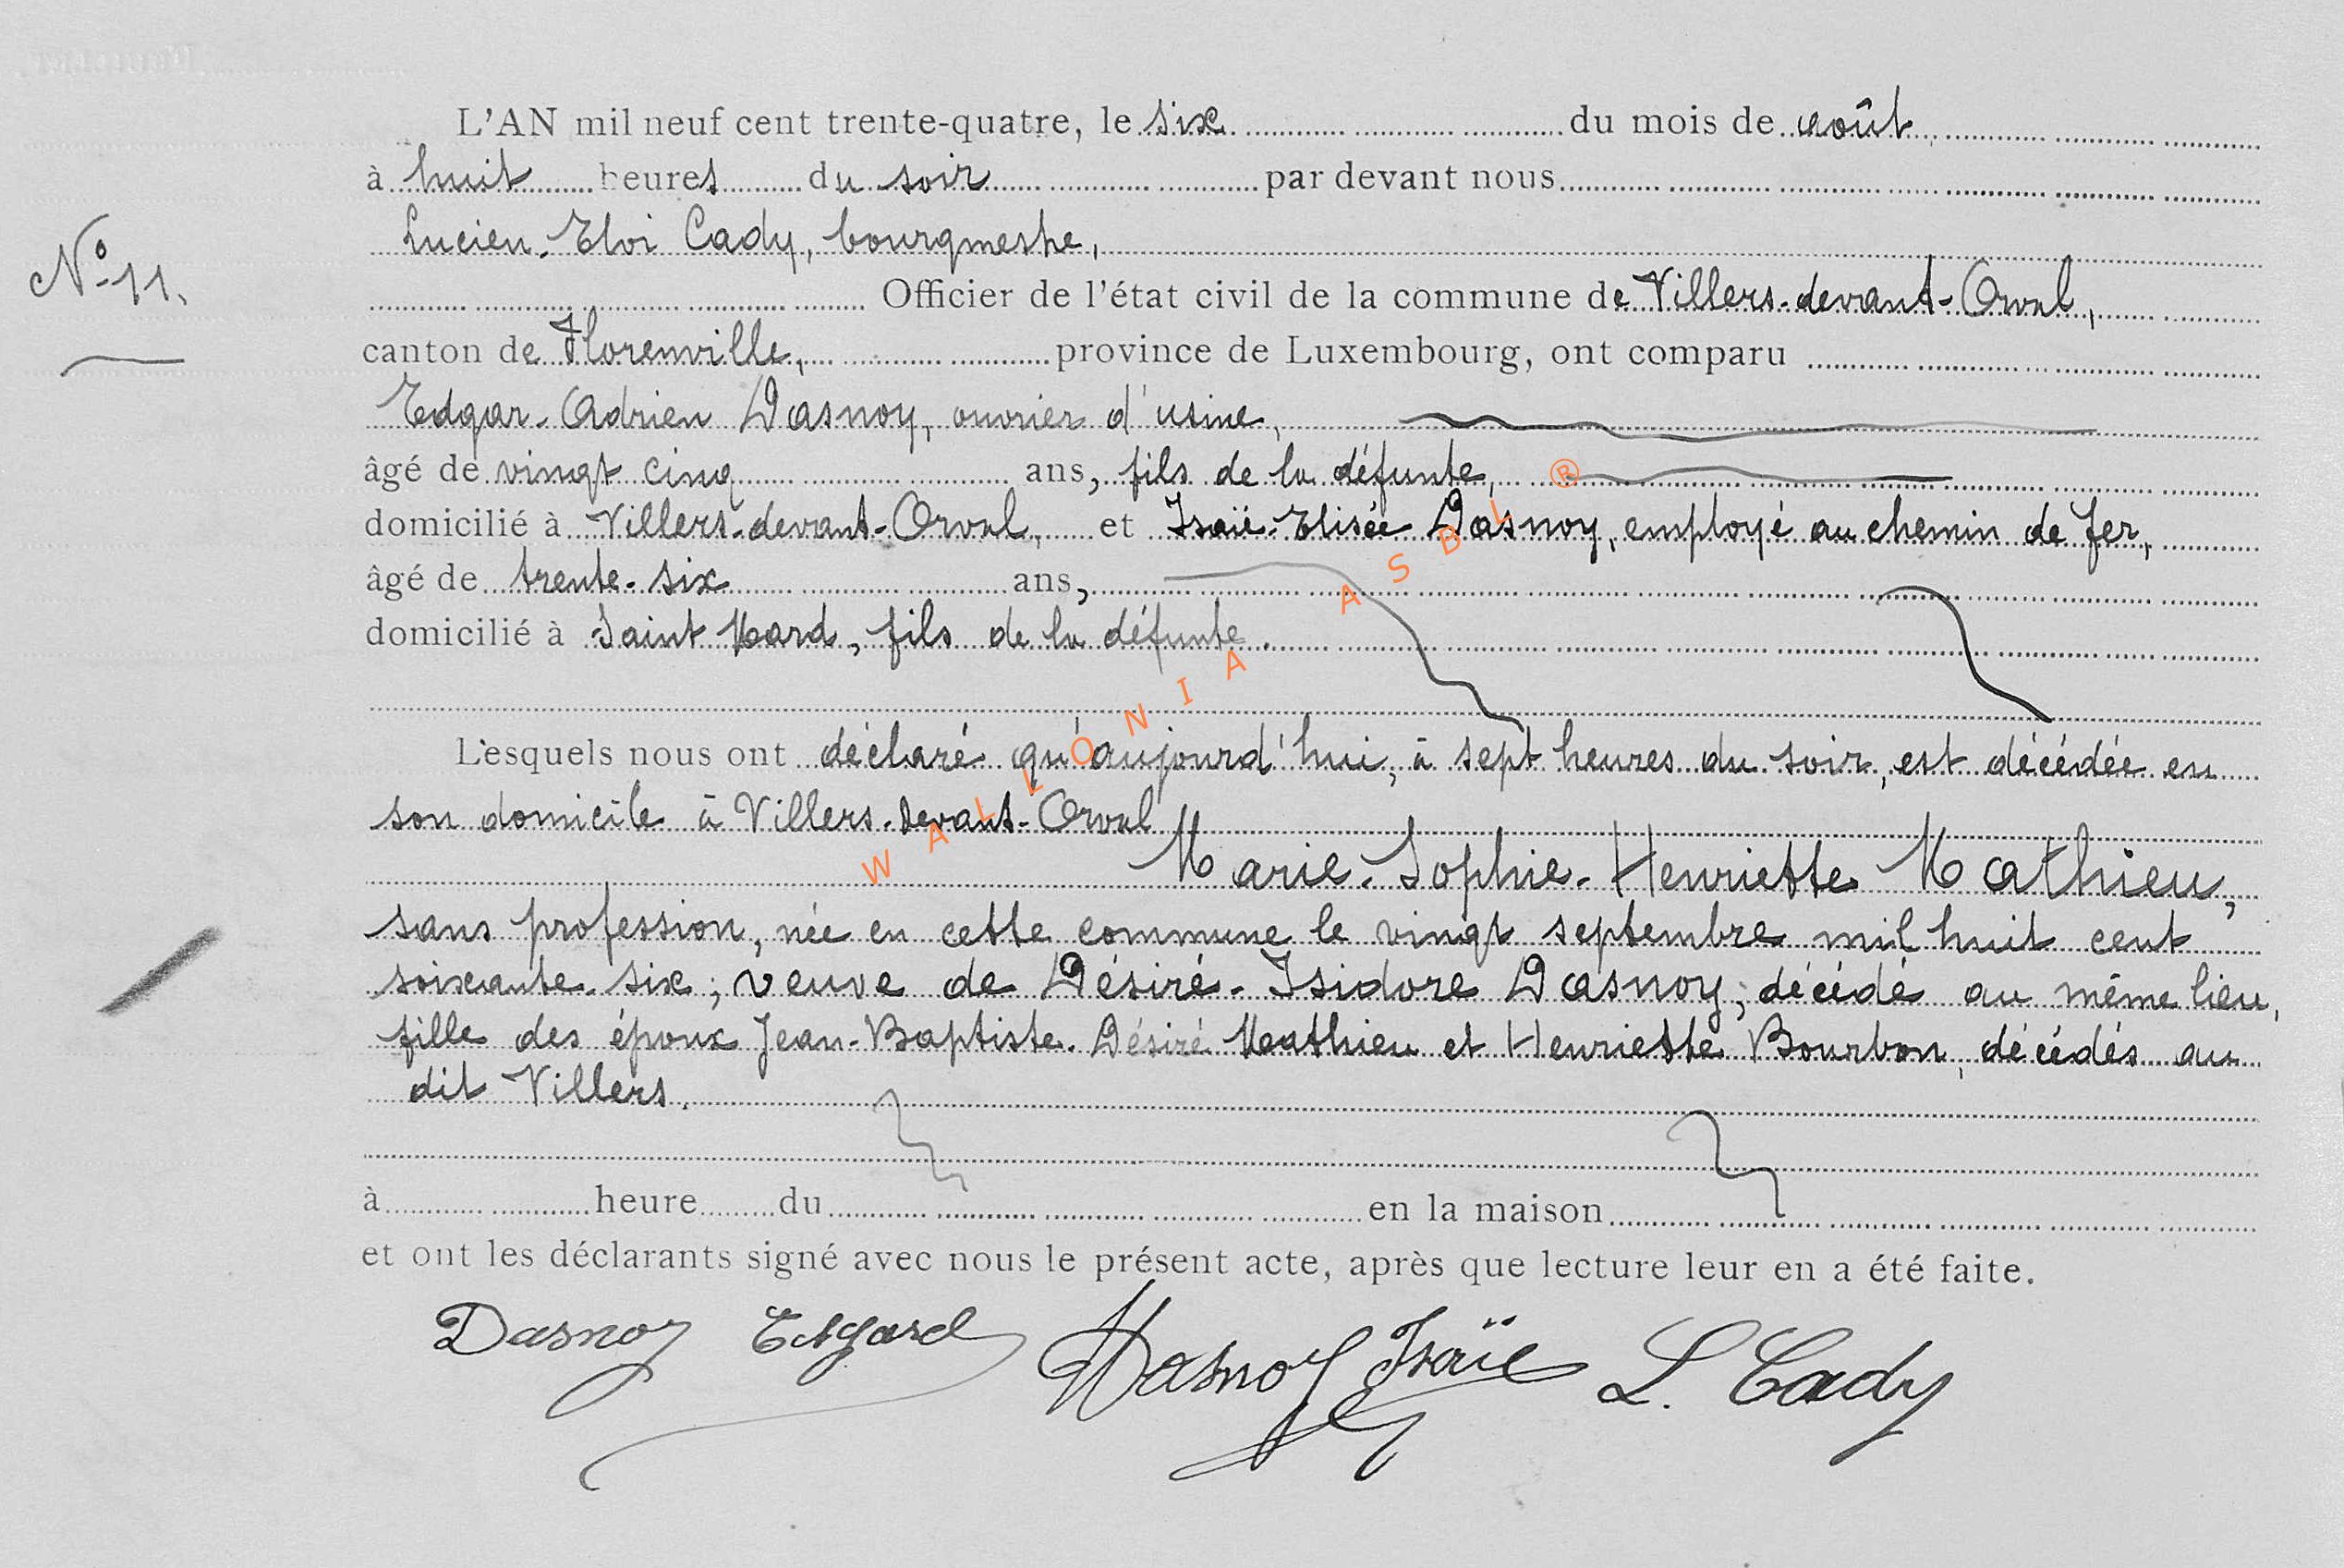 L'AN mil neuf cent trente-quatre, le six du mois de août
à huit heures du soir par devant nous
Lucien-Eloi Cady, bourgmestre,
N° 11.
Officier de l'état civil de la commune de Villers-devant-Orval,
canton de Florenville, province de Luxembourg, ont comparu
Edgar-Adrien Dasnoy, ouvrier d'usine,
âgé de vingt cinq ans, fils de la défunte,
domicilié à Villers-devant-Orval, et Isaïe-Elisée Dasnoy, employé au chemin de fer,
âgé de trente-six ans,
domicilié à Saint Mard, fils de la défunte.
Lesquels nous ont déclaré qu'aujourd'hui, à sept heures du soir, est décédée en
son domicile à Villers-devant-Orval
Marie-Sophie-Henriette Mathieu,
sans profession, née en cette commune le vingt septembre mil huit cent
soixante-six; veuve de Désiré-Isidore Dasnoy, décédé au même lieu,
fille des époux Jean-Baptiste-Désiré Mathieu et Henriette Bourbon, décédés au
dit Villers.
à heure du en la maison
et ont les déclarants signé avec nous le présent acte, après que lecture leur en a été faite.
Dasnoy Edgard Dasnoy Isaïe L. Cady
WALLONIA ASBL ®